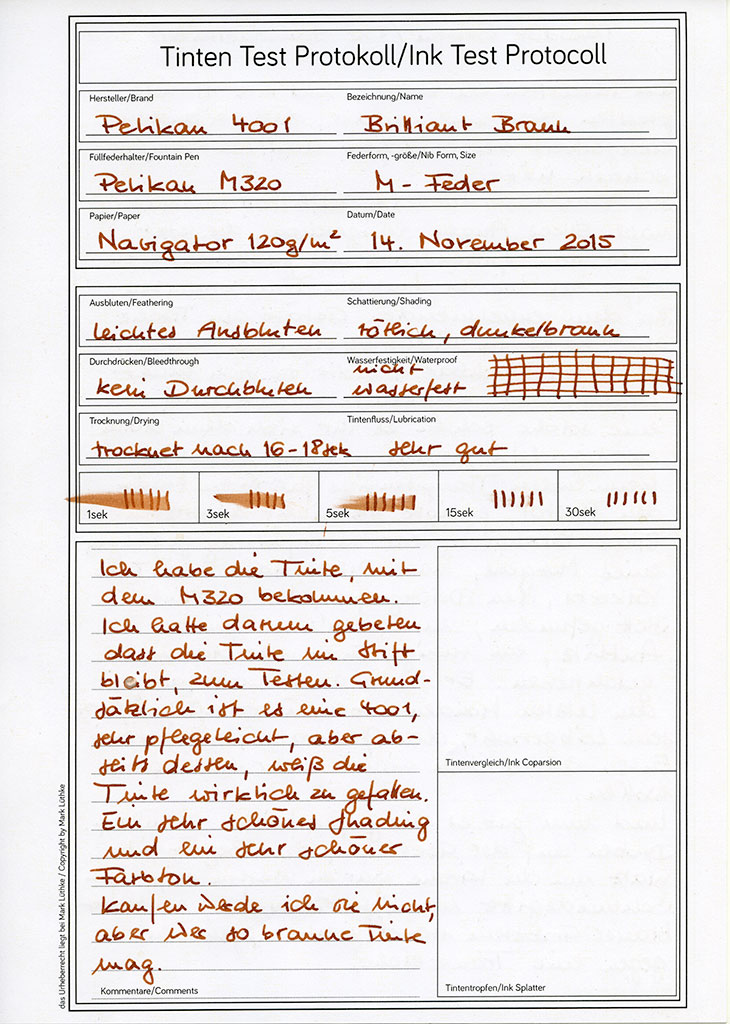 Tinten Test Protokoll/Ink Test Protocoll
Hersteller/Brand
Pelikan 4001
Bezeichnung/Name
Brilliant Braun
Füllfederhalter/Fountain Pen
Pelikan M320
Federform, -größe/Nib Form, Size
M - Feder
Papier/Paper
Navigator 120g/m²
Datum/Date
14. November 2015
Ausbluten/Feathering
leichtes Ausbluten
Schattierung/Shading
rötlich, dunkelbraun
Durchdrücken/Bleedthrough
kein Durchbluten
Wasserfestigkeit/Waterproof
nicht
wasserfest
Trocknung/Drying
trocknet nach 16-18sek
Tintenfluss/Lubrication
sehr gut
1sek
3sek
5sek
15sek
30sek
Ich habe die Tinte, mit
dem M320 bekommen.
Ich hatte darum gebeten
dass die Tinte im Stift
bleibt, zum Testen. Grund-
sätzlich ist es eine 4001,
sehr pflegeleicht, aber ab-
seits dessen, weiß die
Tinte wirklich zu gefallen.
Ein sehr schönes Shading
und ein sehr schöner
Farbton.
Kaufen werde ich sie nicht,
aber wer so braune Tinte
mag.
Kommentare/Comments
Tintenvergleich/Ink Coparsion
Tintentropfen/Ink Splatter
das Urheberrecht liegt bei Mark Lüthke / Copyright by Mark Lüthke